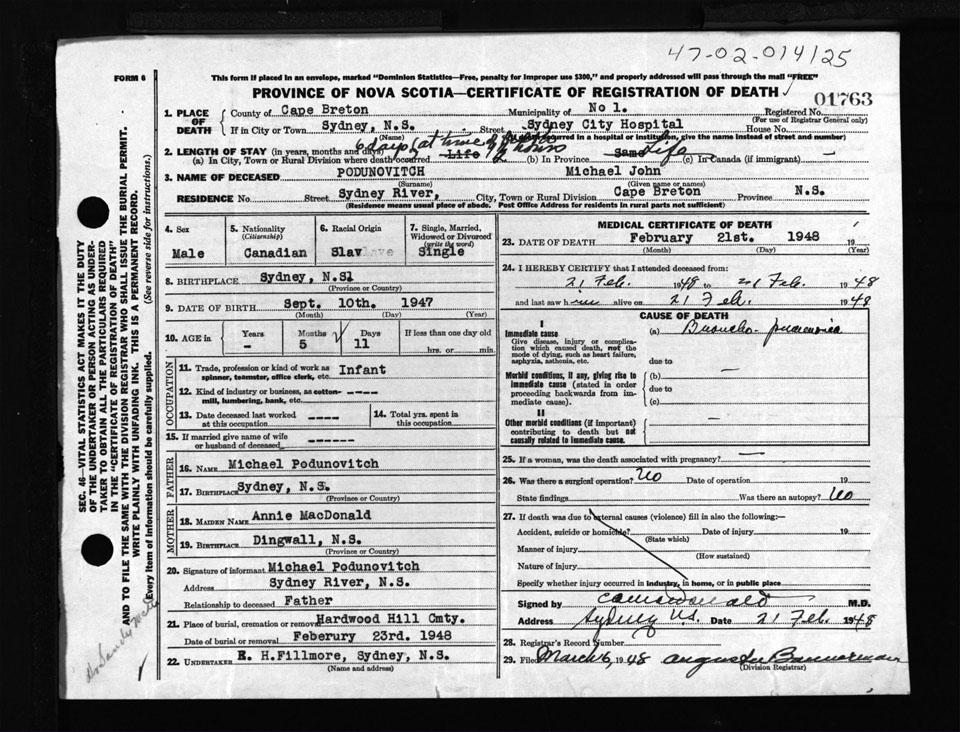 47-02-014125
FORM 6
This form if placed in an envelope, marked "Dominion Statistics—Free, penalty for improper use $300," and properly addressed will pass through the mail "FREE"
PROVINCE OF NOVA SCOTIA—CERTIFICATE OF REGISTRATION OF DEATH
01763
1. PLACE OF DEATH
County of Cape Breton Municipality of No 1. Registered No.
(For use of Registrar General only)
If in City or Town Sydney, N.S. Street Sydney City Hospital House No.
(Name) (If death occurred in a hospital or institution, give the name instead of street and number)
2. LENGTH OF STAY (in years, months and days) 6 days (at time of
(a) In City, Town or Rural Division where death occurred Life (b) In Province Same Life (c) In Canada (if immigrant) —
3. NAME OF DECEASED PODUNOVITCH Michael John
(Surname) (Given name or names)
RESIDENCE No. Street Sydney River, City, Town or Rural Division Cape Breton Province N.S.
(Residence means usual place of abode. Post Office Address for residents in rural parts not sufficient)
4. Sex
Male
5. Nationality
(Citizenship)
Canadian
6. Racial Origin
Slav
7. Single, Married, Widowed or Divorced
(write the word)
Single
8. BIRTHPLACE Sydney, N.Sl
(Province or Country)
9. DATE OF BIRTH Sept. 10th. 1947
(Month) (Day) (Year)
10. AGE in
Years Months Days If less than one day old
- 5 11 hrs. or min.
OCCUPATION
11. Trade, profession or kind of work as spinner, teamster, office clerk, etc. Infant
12. Kind of industry or business, as cotton-mill, lumbering, bank, etc. ----
13. Date deceased last worked at this occupation ----
14. Total yrs. spent in this occupation
15. If married give name of wife or husband of deceased ------
FATHER
16. NAME Michael Podunovitch
17. BIRTHPLACE Sydney, N.S.
(Province or Country)
MOTHER
18. MAIDEN NAME Annie MacDonald
19. BIRTHPLACE Dingwall, N.S.
(Province or Country)
20. Signature of informant Michael Podunovitch
Address Sydney River, N.S.
Relationship to deceased Father
21. Place of burial, cremation or removal Hardwood Hill Cmty.
Date of burial or removal Feberury 23rd. 1948
22. UNDERTAKER R. H.Fillmore, Sydney, N.S.
(Name and address)
MEDICAL CERTIFICATE OF DEATH
23. DATE OF DEATH February 21st. 1948 19
(Month) (Day) (Year)
24. I HEREBY CERTIFY that I attended deceased from:
21 Feb. 1948 to 21 Feb. 1948
and last saw him alive on 21 Feb. 1948
CAUSE OF DEATH
I
Immediate cause
Give disease, injury or complication which caused death, not the mode of dying, such as heart failure, asphyxia, asthenia, etc.
(a) Broncho-pneumonia
due to
Morbid conditions, if any, giving rise to immediate cause (stated in order proceeding backwards from immediate cause).
(b) —
due to
(c)
II
Other morbid conditions (if important) contributing to death but not causally related to immediate cause.
—
25. If a woman, was the death associated with pregnancy? —
26. Was there a surgical operation? No Date of operation 19
State findings Was there an autopsy? No
27. If death was due to external causes (violence) fill in also the following:—
Accident, suicide or homicide? Date of injury 19
(State which)
Manner of injury
(How sustained)
Nature of injury
Specify whether injury occurred in industry, in home, or in public place
Signed by M.D.
Address Sydney N.S. Date 21 Feb. 1948
28. Registrar's Record Number
29. Filed March 6, 1948 Bannerman
(Division Registrar)
SEC. 46—VITAL STATISTICS ACT MAKES IT THE DUTY
OF THE UNDERTAKER OR PERSON ACTING AS UNDER-
TAKER TO OBTAIN ALL THE PARTICULARS REQUIRED
IN THE "CERTIFICATE OF REGISTRATION OF DEATH"
AND TO FILE THE SAME WITH THE DIVISION REGISTRAR WHO SHALL ISSUE THE BURIAL PERMIT.
WRITE PLAINLY WITH UNFADING INK. THIS IS A PERMANENT RECORD.
Every item of information should be carefully supplied. (See reverse side for instructions.)